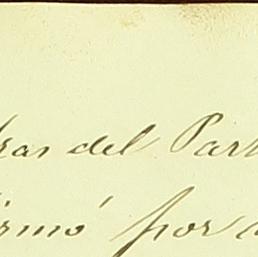 ras del Part
irmó por